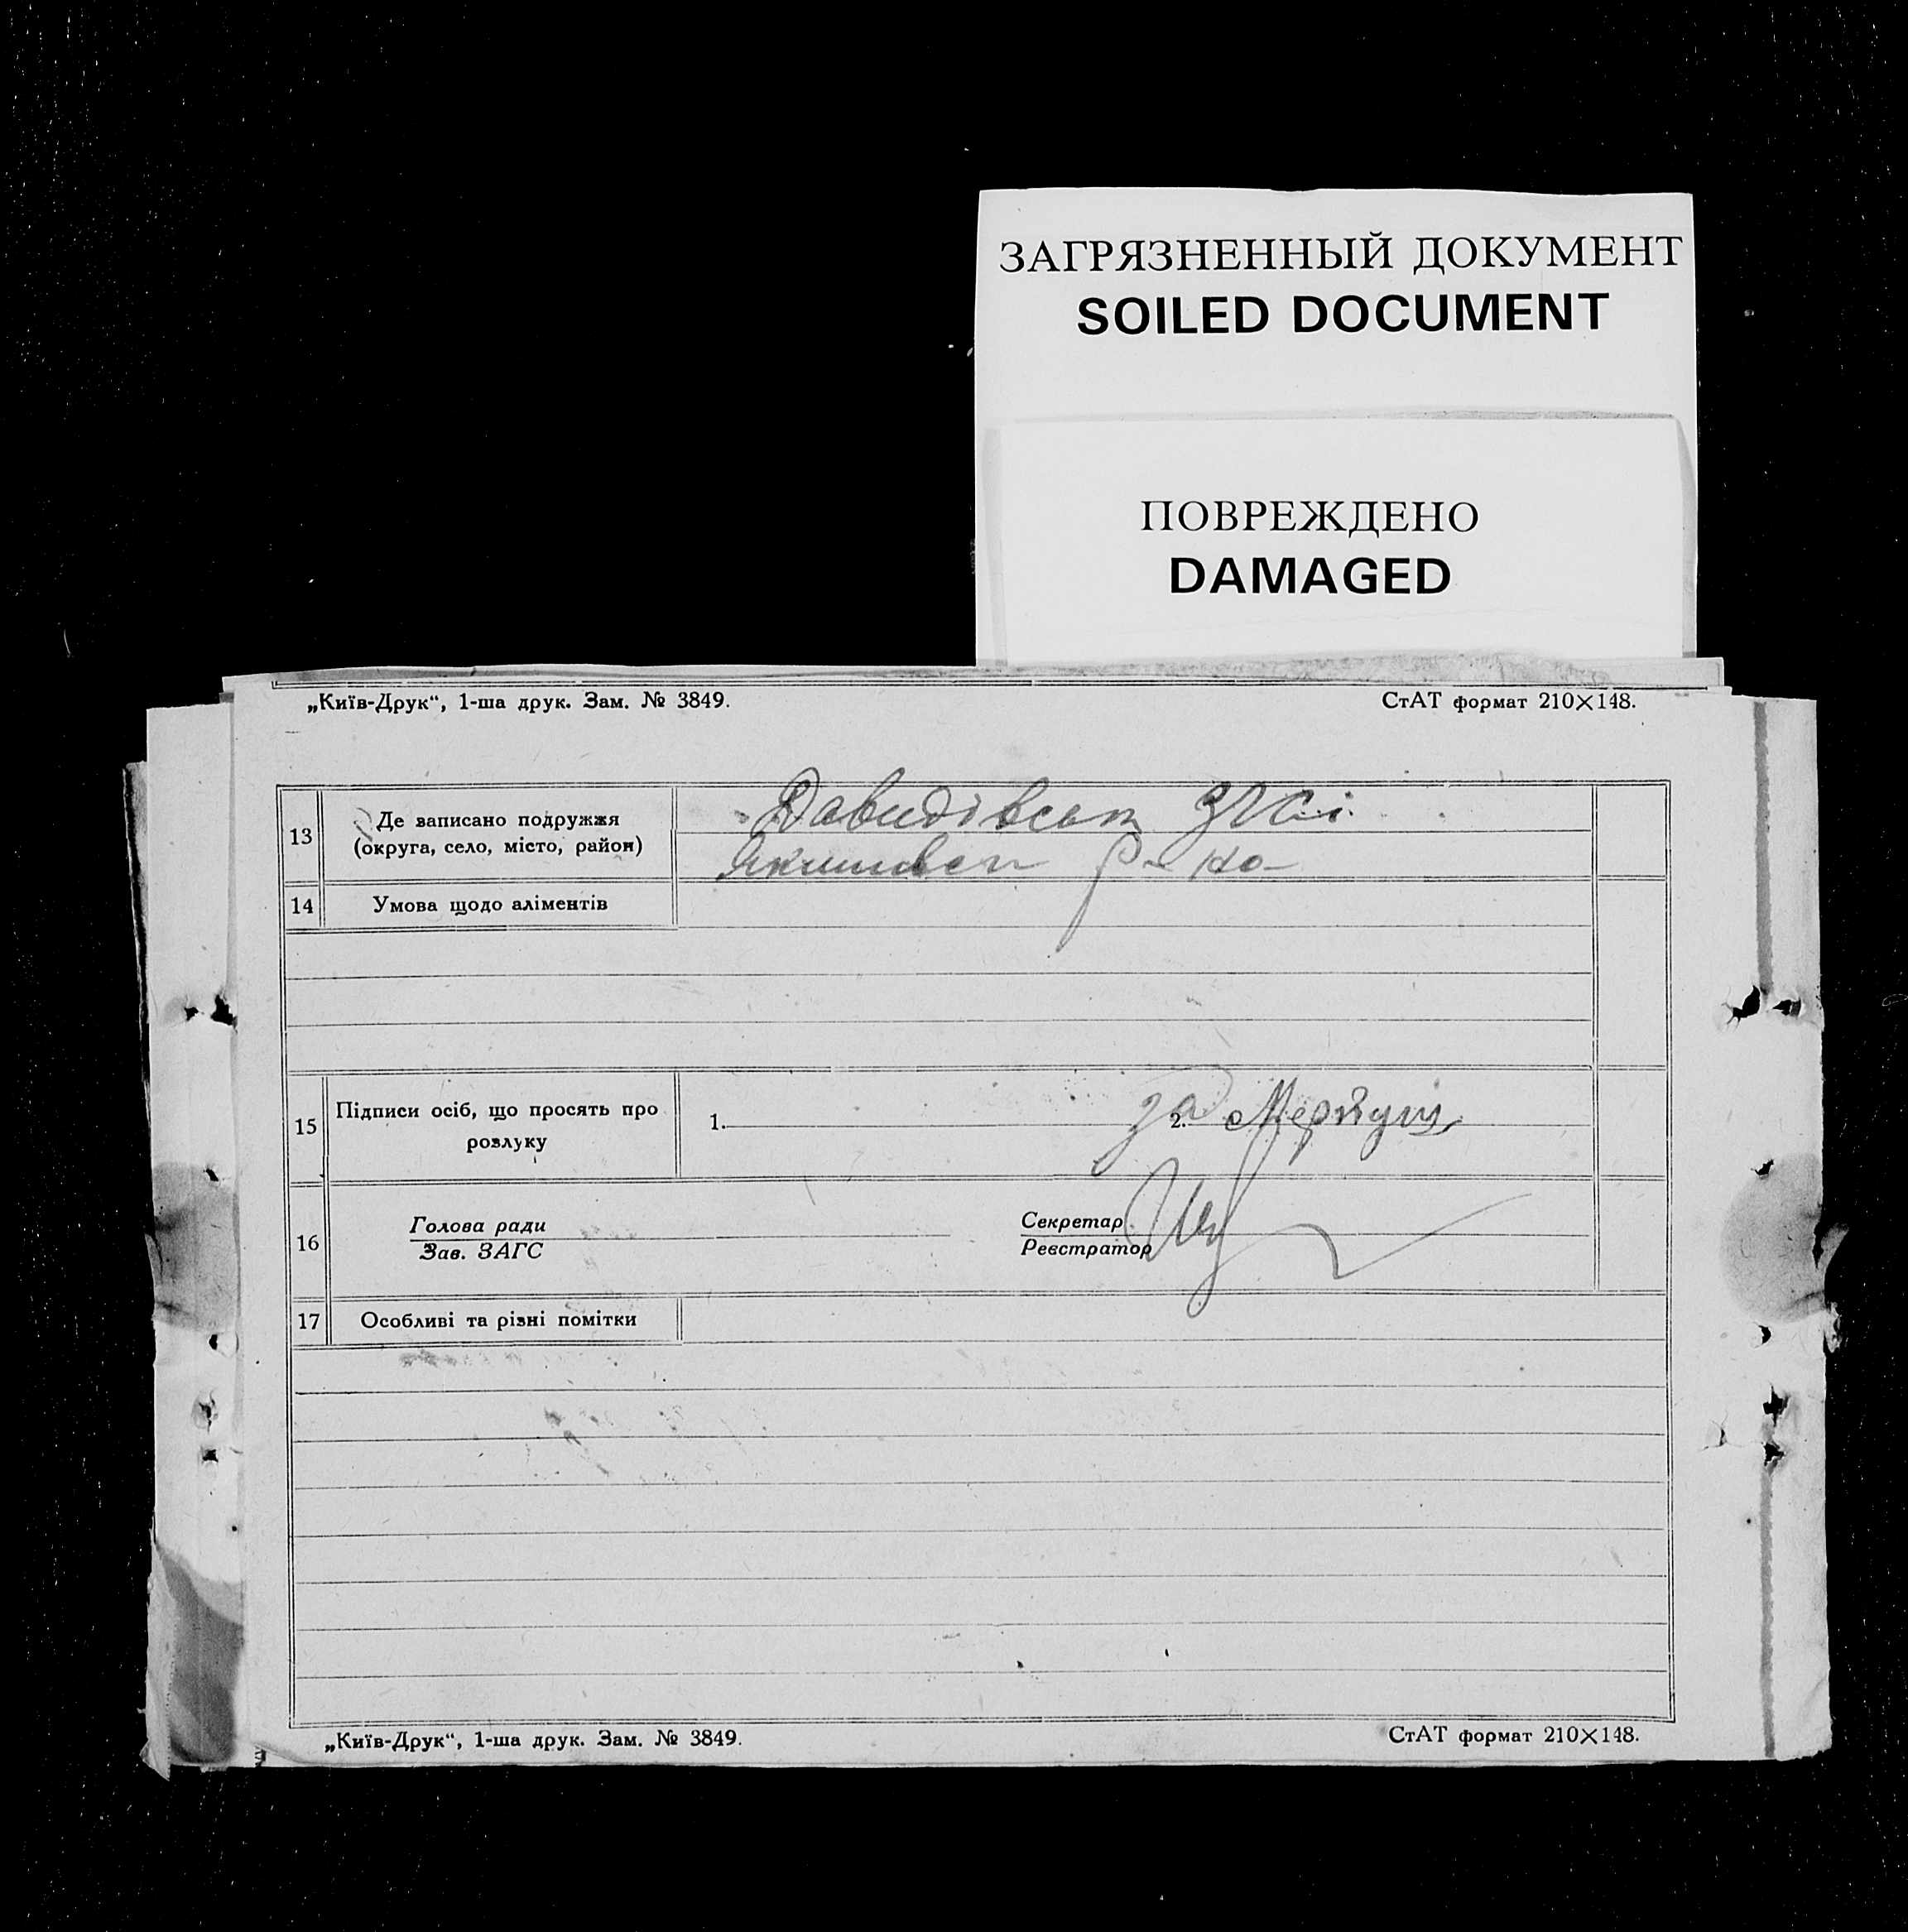 ЗАГРЯЗНЕННЫЙ ДОКУМЕНТ
SOILED DOCUMENT
ПОВРЕЖДЕНО
DAMAGED
„Київ-Друк“, 1-ша друк. Зам. № 3849.
СтАТ формат 210×148.
13
Де записано подружжя
(округа, село, місто, район)
Давидівськ
р-на
14
Умова щодо аліментів
15
Підписи осіб, що просять про
розлуку
1.
2.
за
16
Голова ради
Зав. ЗАГС
Секретар
Реєстратор
17
Особливі та різні помітки
„Київ-Друк“, 1-ша друк. Зам. № 3849.
СтАТ формат 210×148.